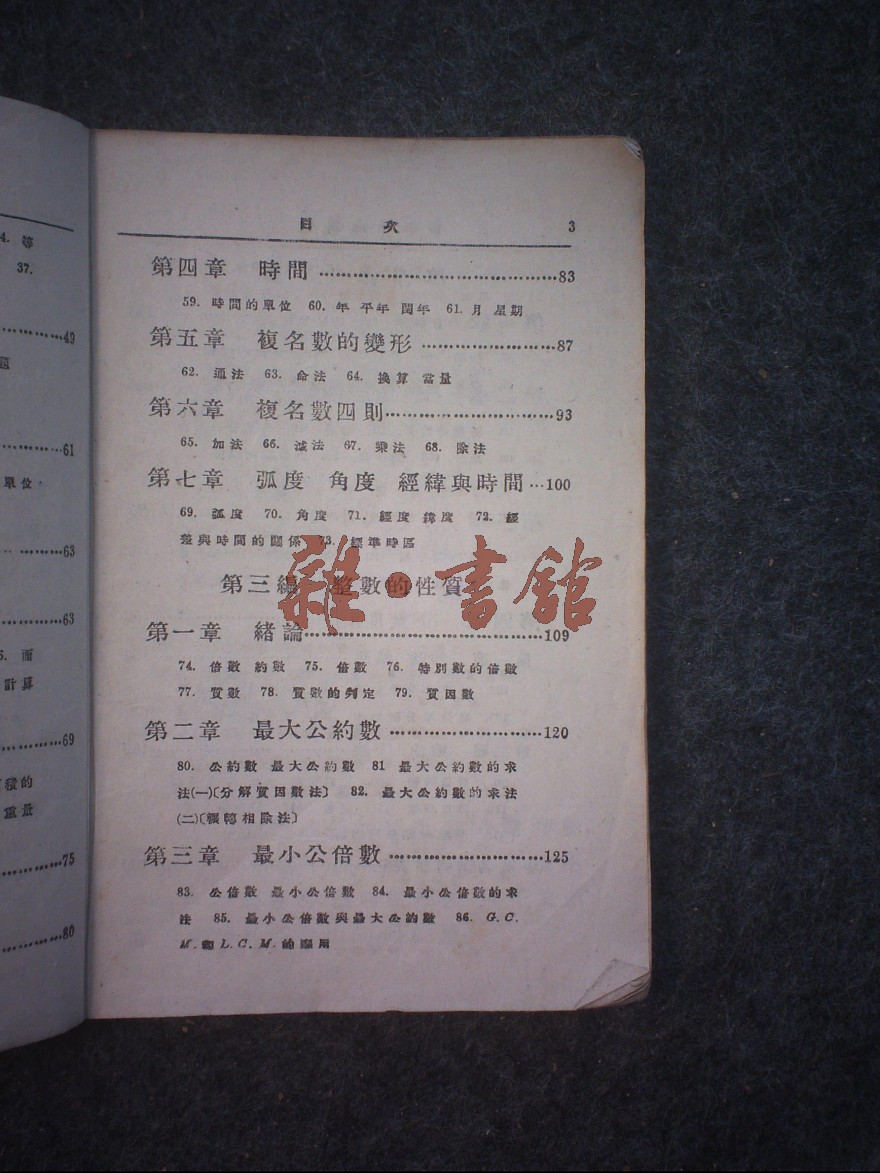 4. 等
37.
49
題
61
單位
63
63
面
計算
69
積的
重量
75
80
目 次 3
第四章 時間 83
59. 時間的單位 60. 年 平年 閏年 61. 月 星期
第五章 複名數的變形 87
62. 通法 63. 命法 64. 換算 當量
第六章 複名數四則 93
65. 加法 66. 減法 67. 乘法 68. 除法
第七章 弧度 角度 經緯與時間 100
69. 弧度 70. 角度 71. 經度 緯度 72. 經
差與時間的關係 73. 標準時區
第三編 整數的性質
雜·書館
第一章 緒論 109
74. 倍數 約數 75. 倍數 76. 特別數的倍數
77. 質數 78. 質數的判定 79. 質因數
第二章 最大公約數 120
80. 公約數 最大公約數 81 最大公約數的求
法(一)〔分解質因數法〕 82. 最大公約數的求法
(二)〔輾轉相除法〕
第三章 最小公倍數 125
83. 公倍數 最小公倍數 84. 最小公倍數的求
法 85. 最小公倍數與最大公約數 86. G.C.
M. 和 L.C.M. 的應用